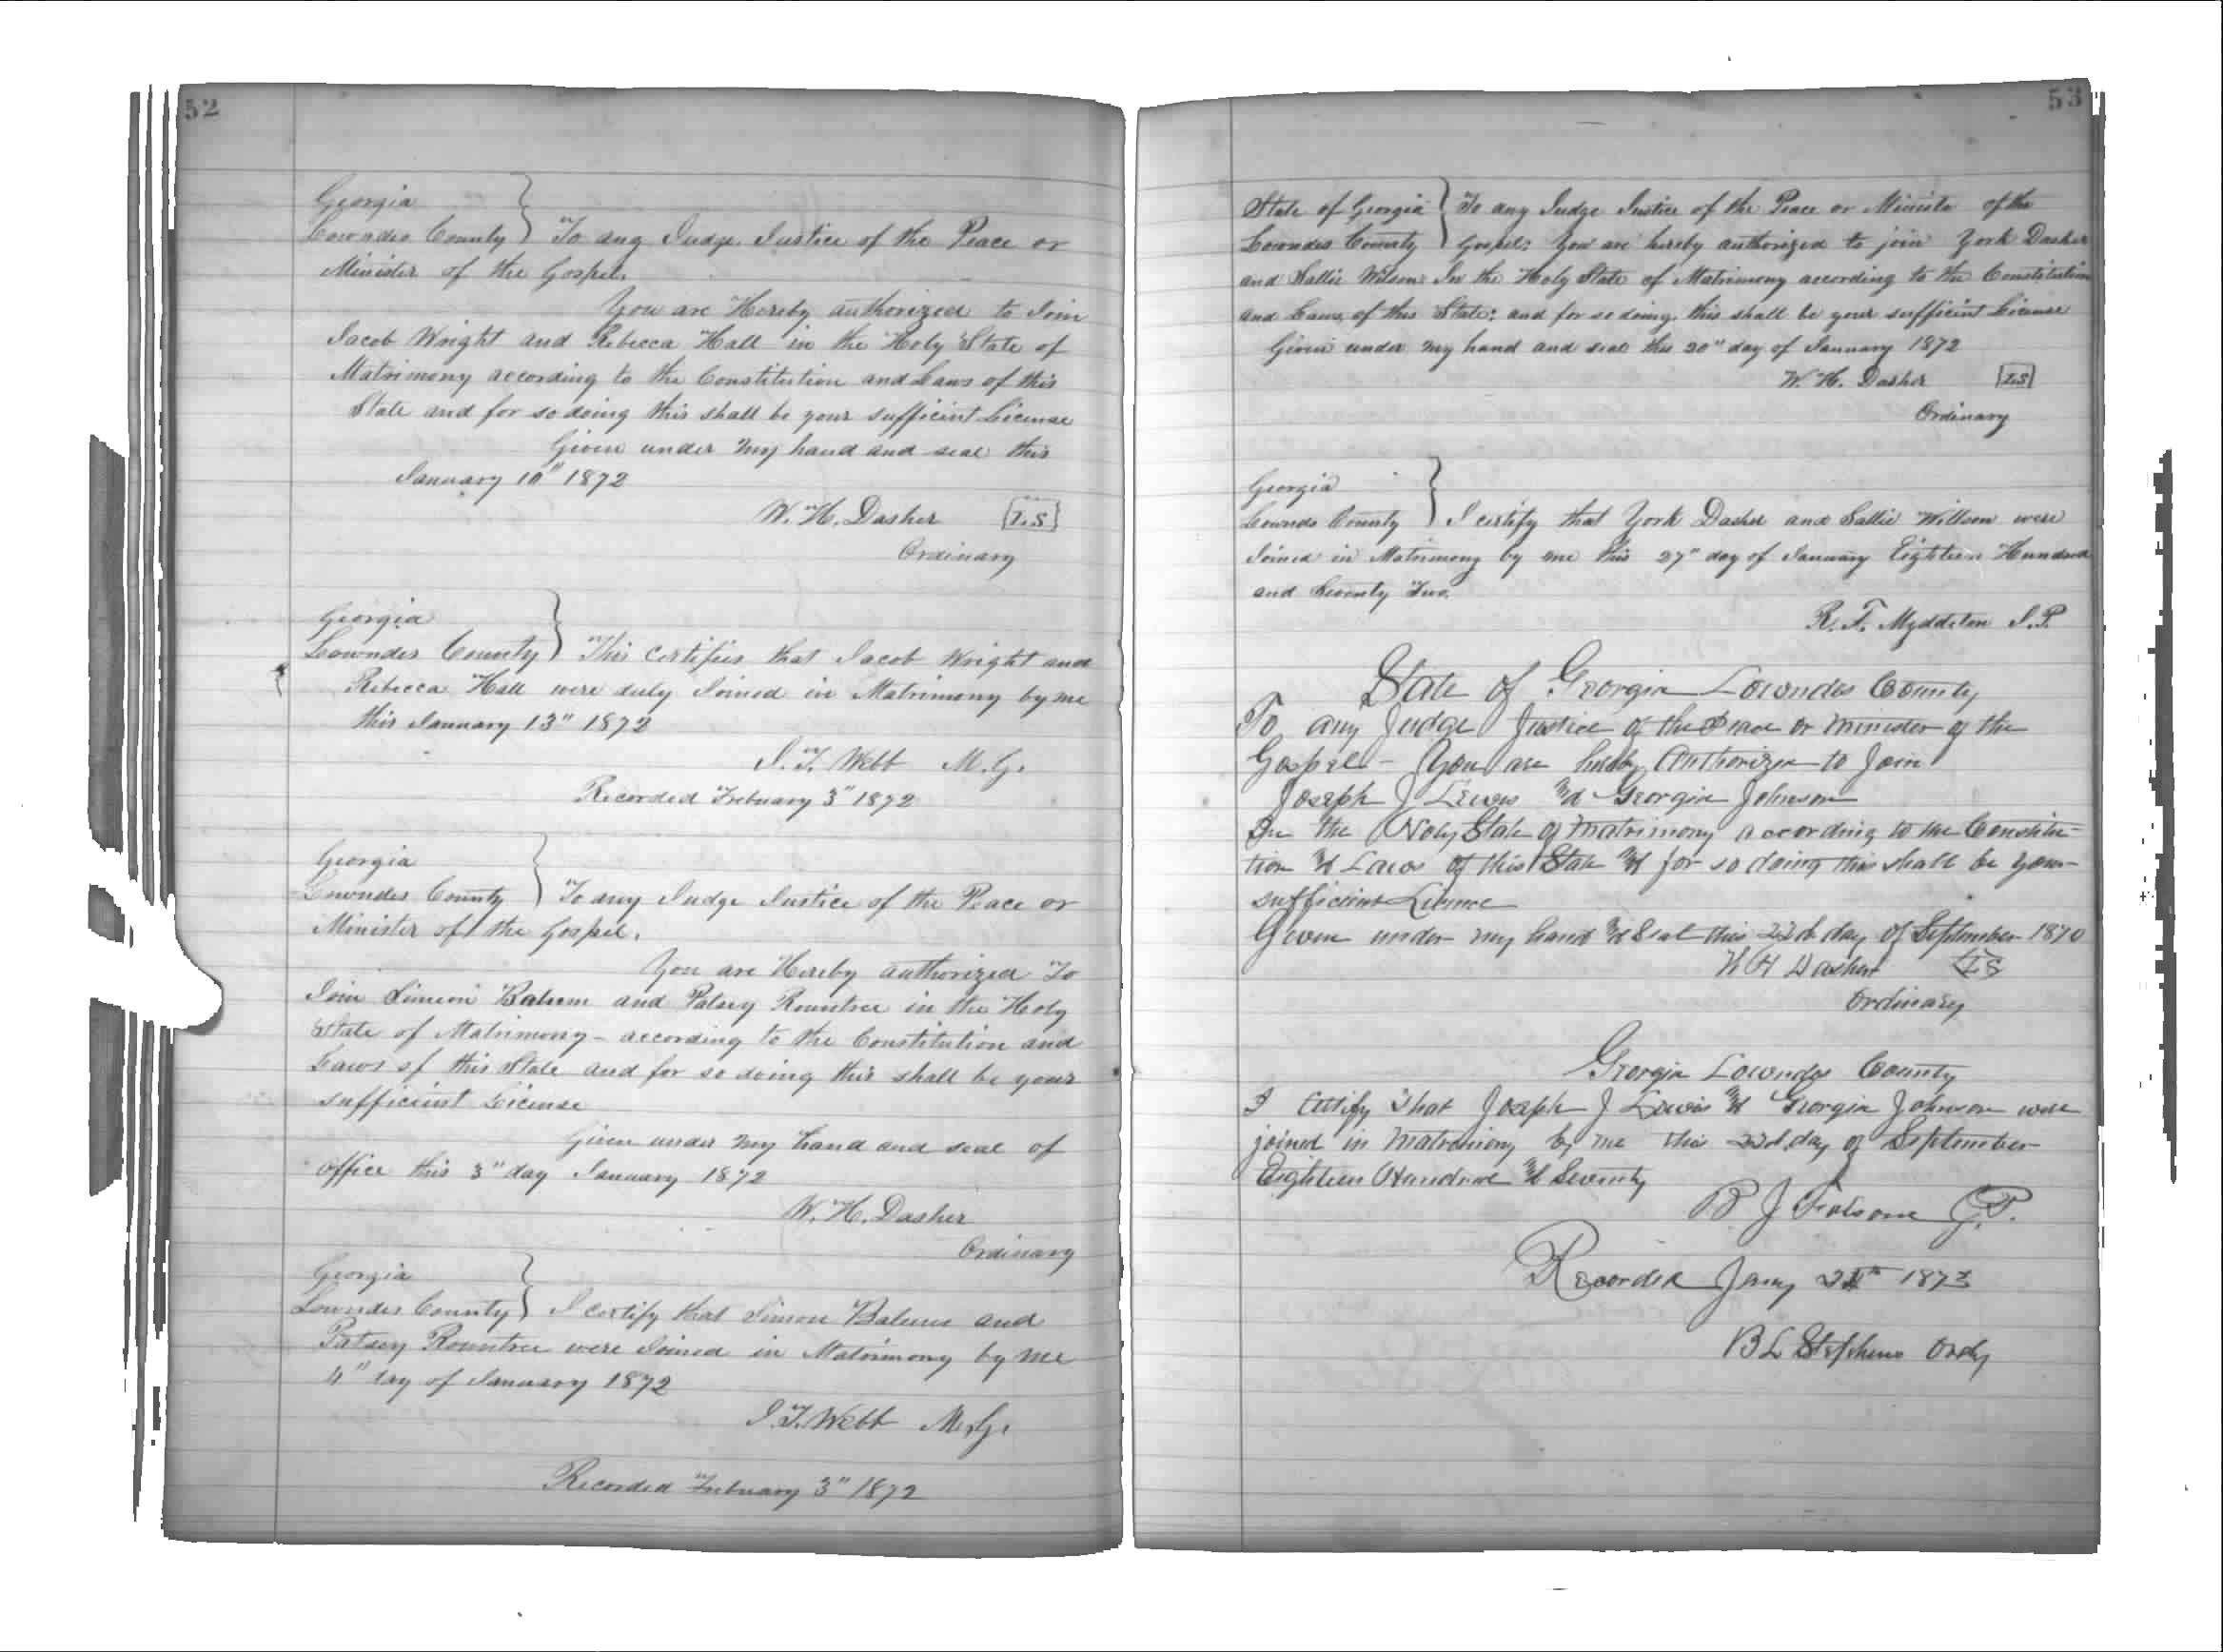 52
Georgia
Lowndes County } To any Judge, Justice of the Peace or
Minister of the Gospel.
You are Hereby authorized to Join
Jacob Wright and Rebecca Hall in the Holy State of
Matrimony according to the Constitution and Laws of this
State and for so doing this shall be your sufficient License
Given under my hand and seal this
January 10" 1872
W. H. Dasher [L.S]
Ordinary
Georgia
Lowndes County } This certifies that Jacob Wright and
Rebecca Hall were duly Joined in Matrimony by me
this January 13" 1872
J. T. Webb M.G.
Recorded February 3" 1872
Georgia
Lowndes County } To any Judge Justice of the Peace or
Minister of the Gospel.
You are Hereby authorized To
Join Simeon and Patsey Rountree in the Holy
State of Matrimony - according to the Constitution and
Laws of this State and for so doing this shall be your
sufficient License
Given under my hand and seal of
office this 3" day January 1872
W. H. Dasher
Ordinary
Georgia
Lowndes County } I certify that Simon and
Patsey Rountree were Joined in Matrimony by me
4" day of January 1872
J. T. Webb M.G.
Recorded February 3" 1872
53
State of Georgia } To any Judge Justice of the Peace or Ministe of the
Lowndes County } Gospel: You are hereby authorized to join York Dasher
and Sallie Wilson In the Holy State of Matrimony according to the Constitution
and Laws of this State; and for so doing this shall be your sufficient License
Given under my hand and seal this 20" day of January 1872
W. H. Dasher [L.S]
Ordinary
Georgia
Lownds County } I certify that York Dasher and Sallie Willson were
Joined in Matrimony by me this 27" day of January Eighteen Hundred
and Seventy Two.
R. T. Myddelton J.P.
State of Georgia Lowndes County
To any Judge Justice of the Peace or minister of the
Gospel - You are hereby Authorized to Join
Joseph J Lewis & Georgia Johnson
In the Holy State of Matrimony according to the Constitu-
tion & Laws of this State & for so doing this shall be your
sufficient Licence
Given under my hand & Seal this 22d day of September 1870
W H Dasher LS
Ordinary
Georgia Lowndes County
I Certify that Joseph J Lewis & Georgia Johnson were
joined in matrimony by me this 22d day of September
Eighteen Hundred & Seventy
B J Folsom J.P.
Recorded Jany 1873
B L Stephens Ordy